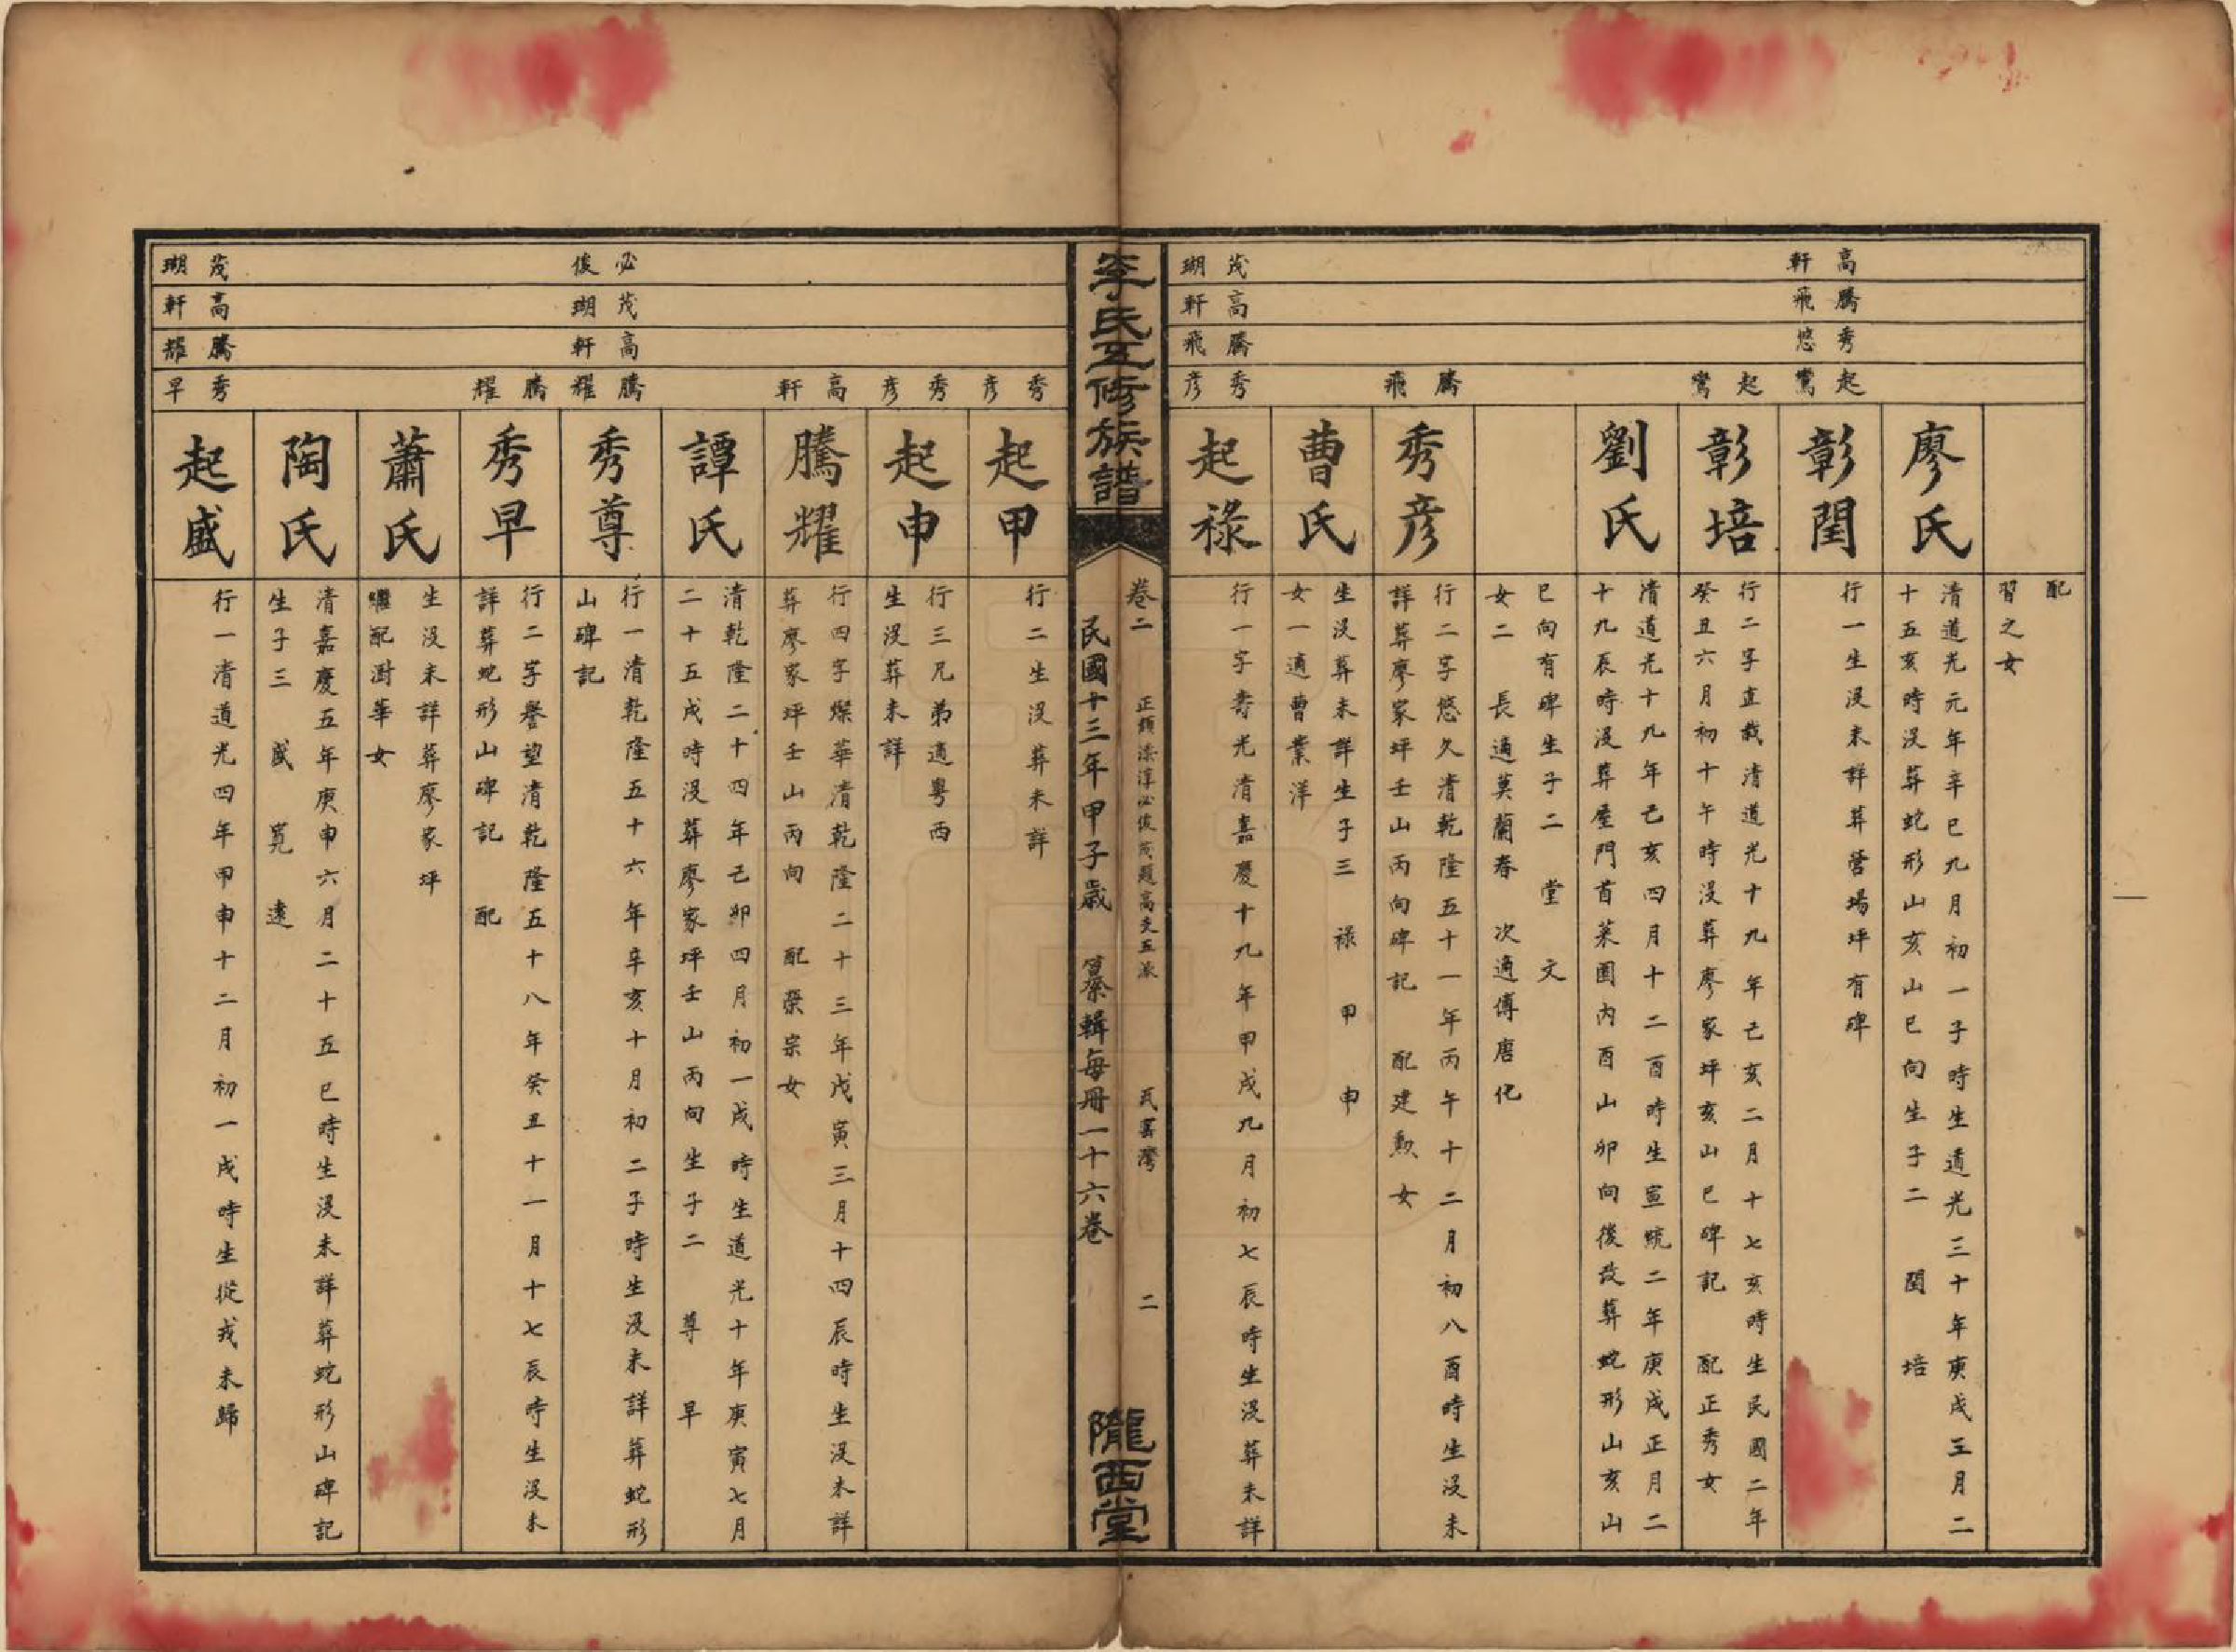 配
習之女
廖氏
清道光元年辛巳九月初一子時生道光三十年庚戌三月二
十五亥時沒葬蛇形山亥山巳向生子二 閏 培
高軒
騰飛
秀悠
起鸞
彰閏
行一生沒未詳葬營場坪有碑
起鸞
彰培
行二字直栽清道光十九年己亥二月十七亥時生民國二年
癸丑六月初十午時沒葬廖家坪亥山巳碑記 配正秀女
劉氏
清道光十九年己亥四月十二酉時生宣統二年庚戌正月二
十九辰時沒葬屋門首菜園內酉山卯向後改葬蛇形山亥山
巳向有碑生子二 堂 文
女二 長適莫蘭春 次適傅唐化
騰飛
秀彥
行二字悠久清乾隆五十一年丙午十二月初八酉時生沒未
詳葬廖家坪壬山丙向碑記 配建勳女
曹氏
生沒葬未詳生子三 祿 甲 申
女一適曹業洋
茂瑚
高軒
騰飛
秀彥
起祿
行一字壽光清嘉慶十九年甲戌九月初七辰時生沒葬未詳
李氏五修族譜
卷二
二
民國十三年甲子歲 纂輯每冊一十六卷
隴西堂
秀彥
起甲
行二生沒葬未詳
秀彥
起申
行三兄弟適粵西
生沒葬未詳
高軒
騰耀
行四字燦華清乾隆二十三年戊寅三月十四辰時生沒未詳
葬廖家坪壬山丙向 配榮宗女
譚氏
清乾隆二十四年己卯四月初一戌時生道光十年庚寅七月
二十五戌時沒葬廖家坪壬山丙向生子二 尊 早
必俊
茂瑚
高軒
騰耀
秀尊
行一清乾隆五十六年辛亥十月初二子時生沒未詳葬蛇形
山碑記
騰耀
秀早
行二字譽望清乾隆五十八年癸丑十一月十七辰時生沒未
詳葬蛇形山碑記 配
蕭氏
生沒未詳葬廖家坪
繼配澍華女
陶氏
清嘉慶五年庚申六月二十五巳時生沒未詳葬蛇形山碑記
生子三 盛 寬 遠
茂瑚
高軒
騰耀
秀早
起盛
行一清道光四年甲申十二月初一戌時生從戎未歸